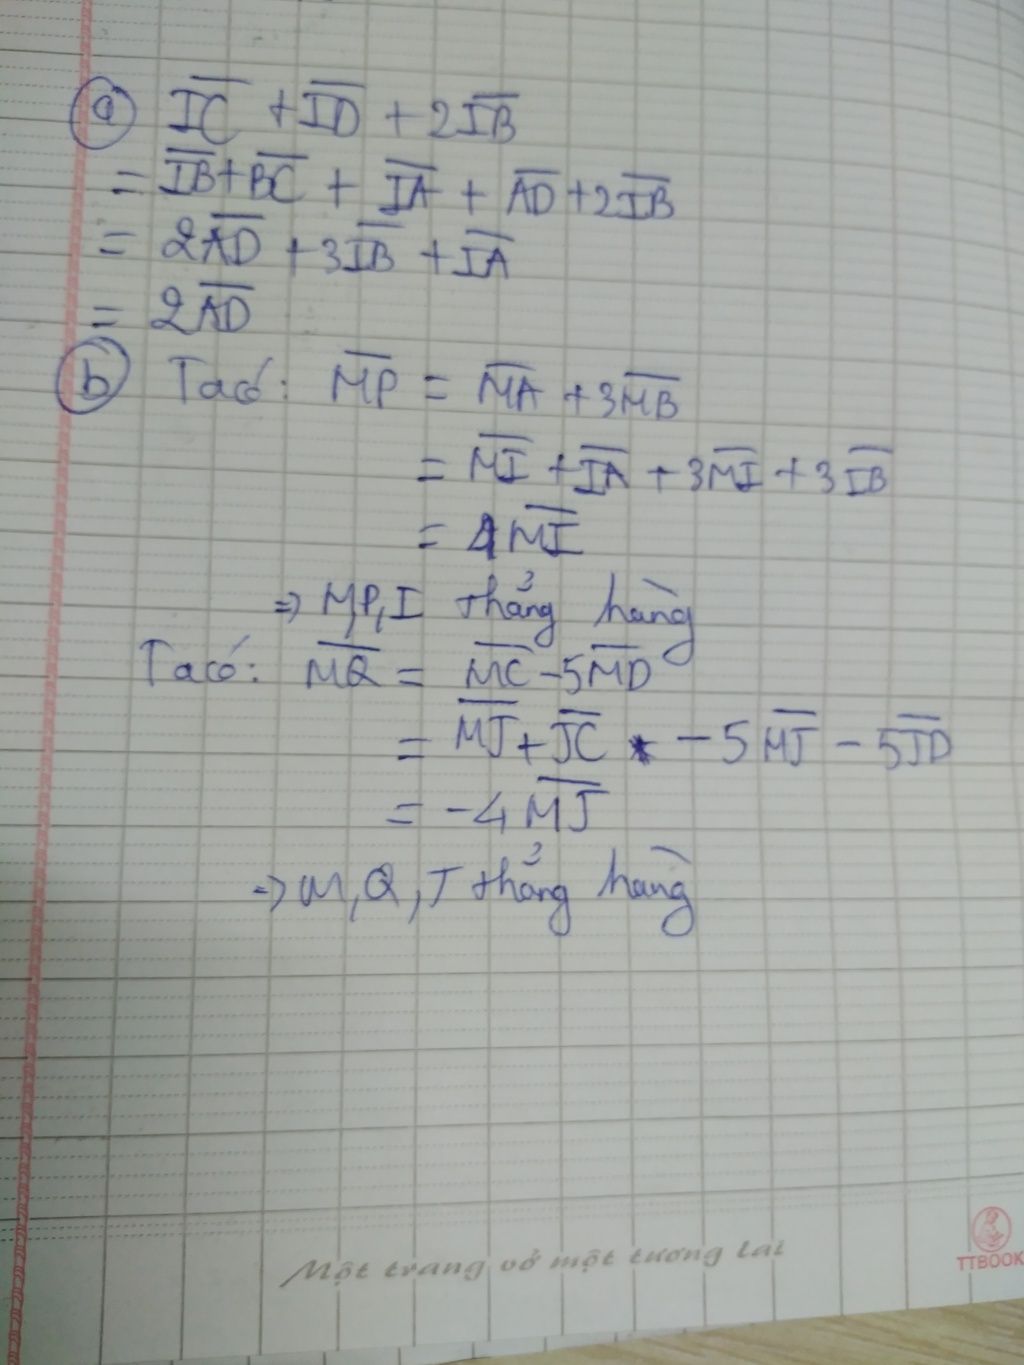 a) IC + ID + 2IB
= IB + BC + IA + AD + 2IB
= 2AD + 3IB + IA
= 2AD
b) Ta có: MP = MA + 3MB
= MI + IA + 3MI + 3IB
= 4MI
=> M,P,I thẳng hàng
Ta có: MQ = MC - 5MD
= MJ + JC - 5MJ - 5JD
= -4MJ
=> M, Q, J thẳng hàng
Một trang vở một tương lai
TTBOOK